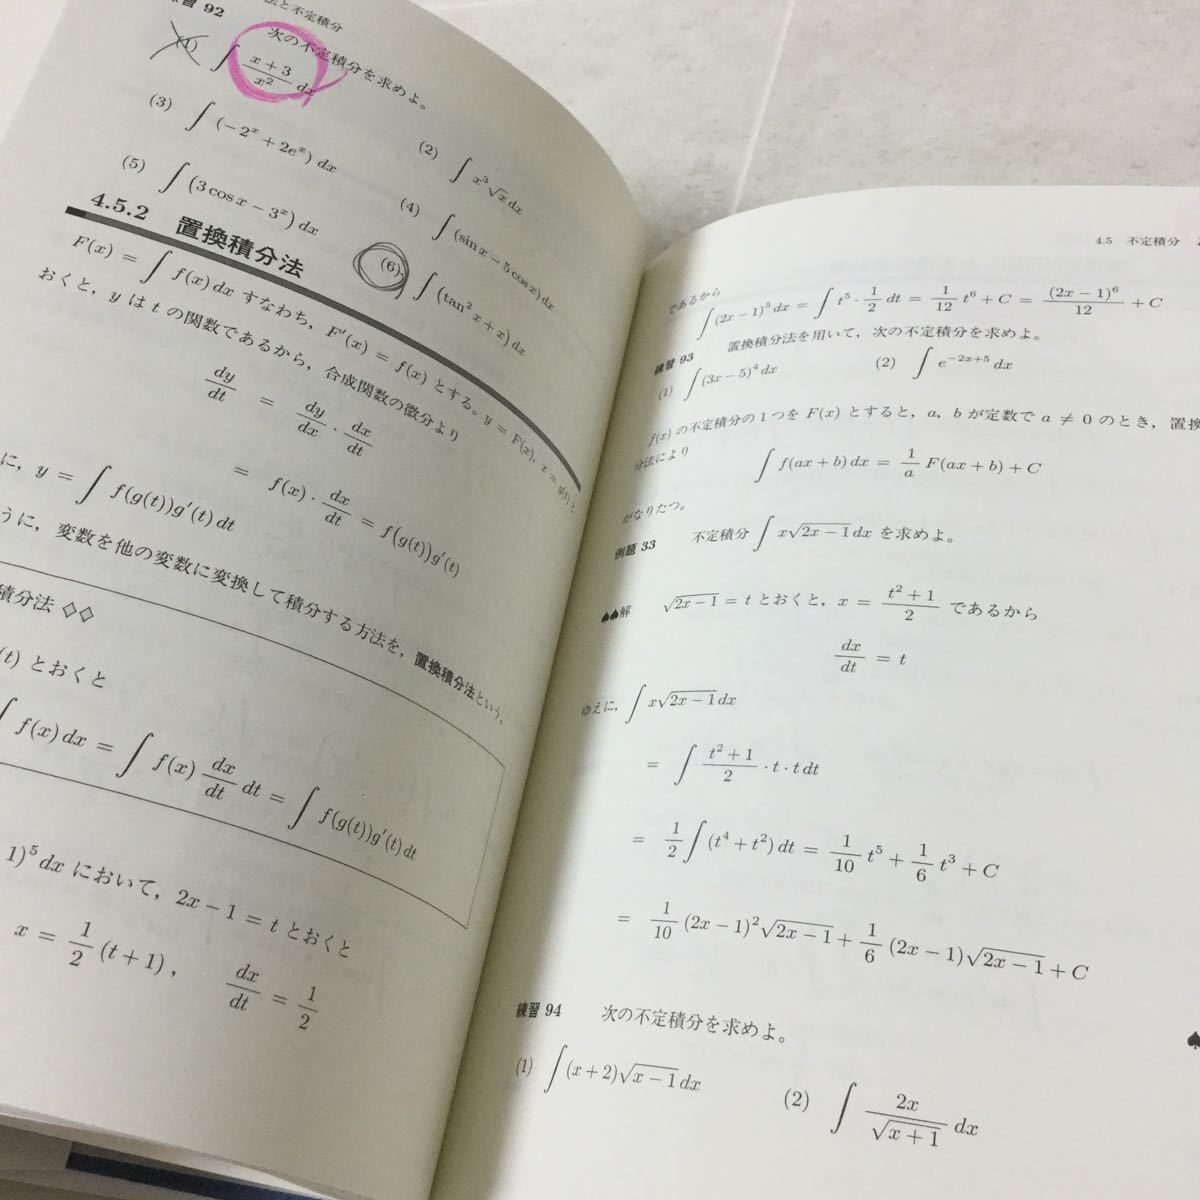 法と不定積分
練習 92 次の不定積分を求めよ。
(1) ∫ (x + 3)/x² dx
(2) ∫ x³√x dx
(3) ∫ (−2ˣ + 2eˣ) dx
(4) ∫ (sin x − 5 cos x) dx
(5) ∫ (3 cos x − 3ˣ) dx
(6) ∫ (tan² x + x) dx
4.5.2 置換積分法
F(x) = ∫ f(x) dx すなわち, F′(x) = f(x) とする。y = F(x), x = g(t) と
おくと, y は t の関数であるから, 合成関数の微分より
dy/dt = dy/dx · dx/dt
= f(x) · dx/dt = f(g(t))g′(t)
に, y = ∫ f(g(t))g′(t) dt
うに, 変数を他の変数に変換して積分する方法を, 置換積分法という。
積分法 ◇◇
(t) とおくと
∫ f(x) dx = ∫ f(x) dx/dt dt = ∫ f(g(t))g′(t) dt
1)⁵ dx において, 2x − 1 = t とおくと
x = 1/2 (t + 1), dx/dt = 1/2
4.5 不定積分
であるから
∫ (2x − 1)⁵ dx = ∫ t⁵ · 1/2 dt = 1/12 t⁶ + C = (2x − 1)⁶/12 + C
練習 93 置換積分法を用いて, 次の不定積分を求めよ。
(1) ∫ (3x − 5)⁴ dx (2) ∫ e⁻²ˣ⁺⁵ dx
f(x) の不定積分の 1 つを F(x) とすると, a, b が定数で a ≠ 0 のとき, 置換
分法により
∫ f(ax + b) dx = 1/a F(ax + b) + C
がなりたつ。
例題 33 不定積分 ∫ x√(2x − 1) dx を求めよ。
♠♠解 √(2x − 1) = t とおくと, x = (t² + 1)/2 であるから
dx/dt = t
ゆえに, ∫ x√(2x − 1) dx
= ∫ (t² + 1)/2 · t · t dt
= 1/2 ∫ (t⁴ + t²) dt = 1/10 t⁵ + 1/6 t³ + C
= 1/10 (2x − 1)²√(2x − 1) + 1/6 (2x − 1)√(2x − 1) + C
♠
練習 94 次の不定積分を求めよ。
(1) ∫ (x + 2)√(x − 1) dx (2) ∫ 2x/√(x + 1) dx